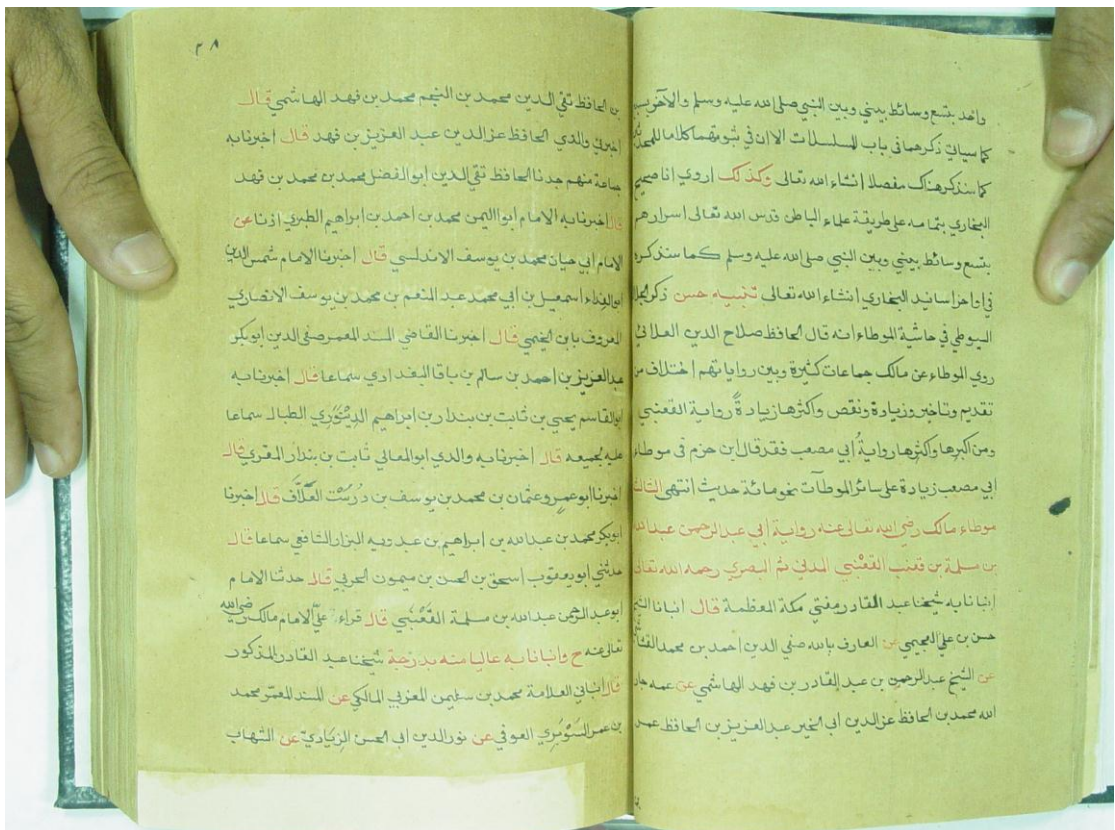 واحد بتسع وسائط بيني وبين النبي صلى الله عليه وسلم والآخر
كما سياتي ذكرهما في باب المسلسلات الا ان في كلاما
كما سنذكر هناك مفصلا انشاء الله تعالى وكذلك اروي انا صحيح
البخاري بتمامه على طريقة علماء الباطن قدس الله تعالى اسرارهم
بتسع وسائط بيني وبين النبي صلى الله عليه وسلم كما سنذكره
في اخر اسانيد البخاري انشاء الله تعالى تنبيه حسن ذكر الجلال
السيوطي في حاشية الموطاء انه قال الحافظ صلاح الدين العلائي
روي الموطاء عن مالك جماعات كثيرة وبين رواياتهم اختلاف من
تقديم وتاخير وزيادة ونقص واكثرها زيادةً رواية القعنبي
ومن اكبرها واكثرها روايةُ ابي مصعب فقد قال ابن حزم في موطاء
ابي مصعب زيادة على سائر الموطآت نحو مائة حديث انتهى الثالث
موطاء مالك رضي الله تعالى عنه رواية ابي عبد الرحمن عبد الله
بن مسلمة بن قعنب القعْنبي المدني ثم البصري رحمه الله تعالى
انبانا به شيخنا عبد القادر مفتي مكة المعظمة قال انبانا الشيخ
حسن بن علي العجيمي عن العارف بالله صفي الدين احمد بن محمد القشاشي
عن الشيخ عبد الرحمن بن عبد القادر بن فهد الهاشمي عن عمه جار
الله محمد بن الحافظ عز الدين ابي الخير عبد العزيز بن الحافظ عمر
٢٨
بن الحافظ تقي الدين محمد بن النجم محمد بن فهد الهاشمي قال
اخبرني والدي الحافظ عز الدين عبد العزيز بن فهد قال اخبرنا به
جماعة منهم جدنا الحافظ تقي الدين ابو الفضل محمد بن محمد بن فهد
قال اخبرنا به الامام ابو اليمن محمد بن احمد بن ابراهيم الطبري اذنا عن
الامام ابي حيان محمد بن يوسف الاندلسي قال اخبرنا الامام شمس الدين
ابو الفداء اسمعيل بن ابي محمد عبد المنعم بن محمد بن يوسف الانصاري
المعروف بابن الخيمي قال اخبرنا القاضي المسند المعمر صفي الدين ابو بكر
عبد العزيز بن احمد بن سالم بن باقا البغدادي سماعا قال اخبرنا به
ابو القاسم يحيى بن ثابت بن بندار بن ابراهيم الدِيْنَوَرِي الطبال سماعا
عليه لجميعه قال اخبرنا به والدي ابو المعالي ثابت بن بندار المقري قال
اخبرنا ابو عمرو عثمان بن محمد بن يوسف بن دُرُسْت العَلّاَف قال اخبرنا
ابو بكر محمد بن عبد الله بن ابراهيم بن عبدويه البزار الشافعي سماعا قال
حدثني ابو يعقوب اسحق بن الحسن بن ميمون الحربي قال حدثنا الامام
ابو عبد الرحمن عبد الله بن مسلمة القَعْنَبي قال قراءة عليّ الامام مالك رضي الله
تعالى عنه ح وانبانا به عاليا منه بدرجة شيخنا عبد القادر المذكور
قال انباني العلامة محمد بن سليمن المغربي المالكي عن المسند المعمّر محمد
بن عمر الشَوْبَرِي العوفي عن نور الدين ابي الحسن الزِيَاديّ عن الشهاب